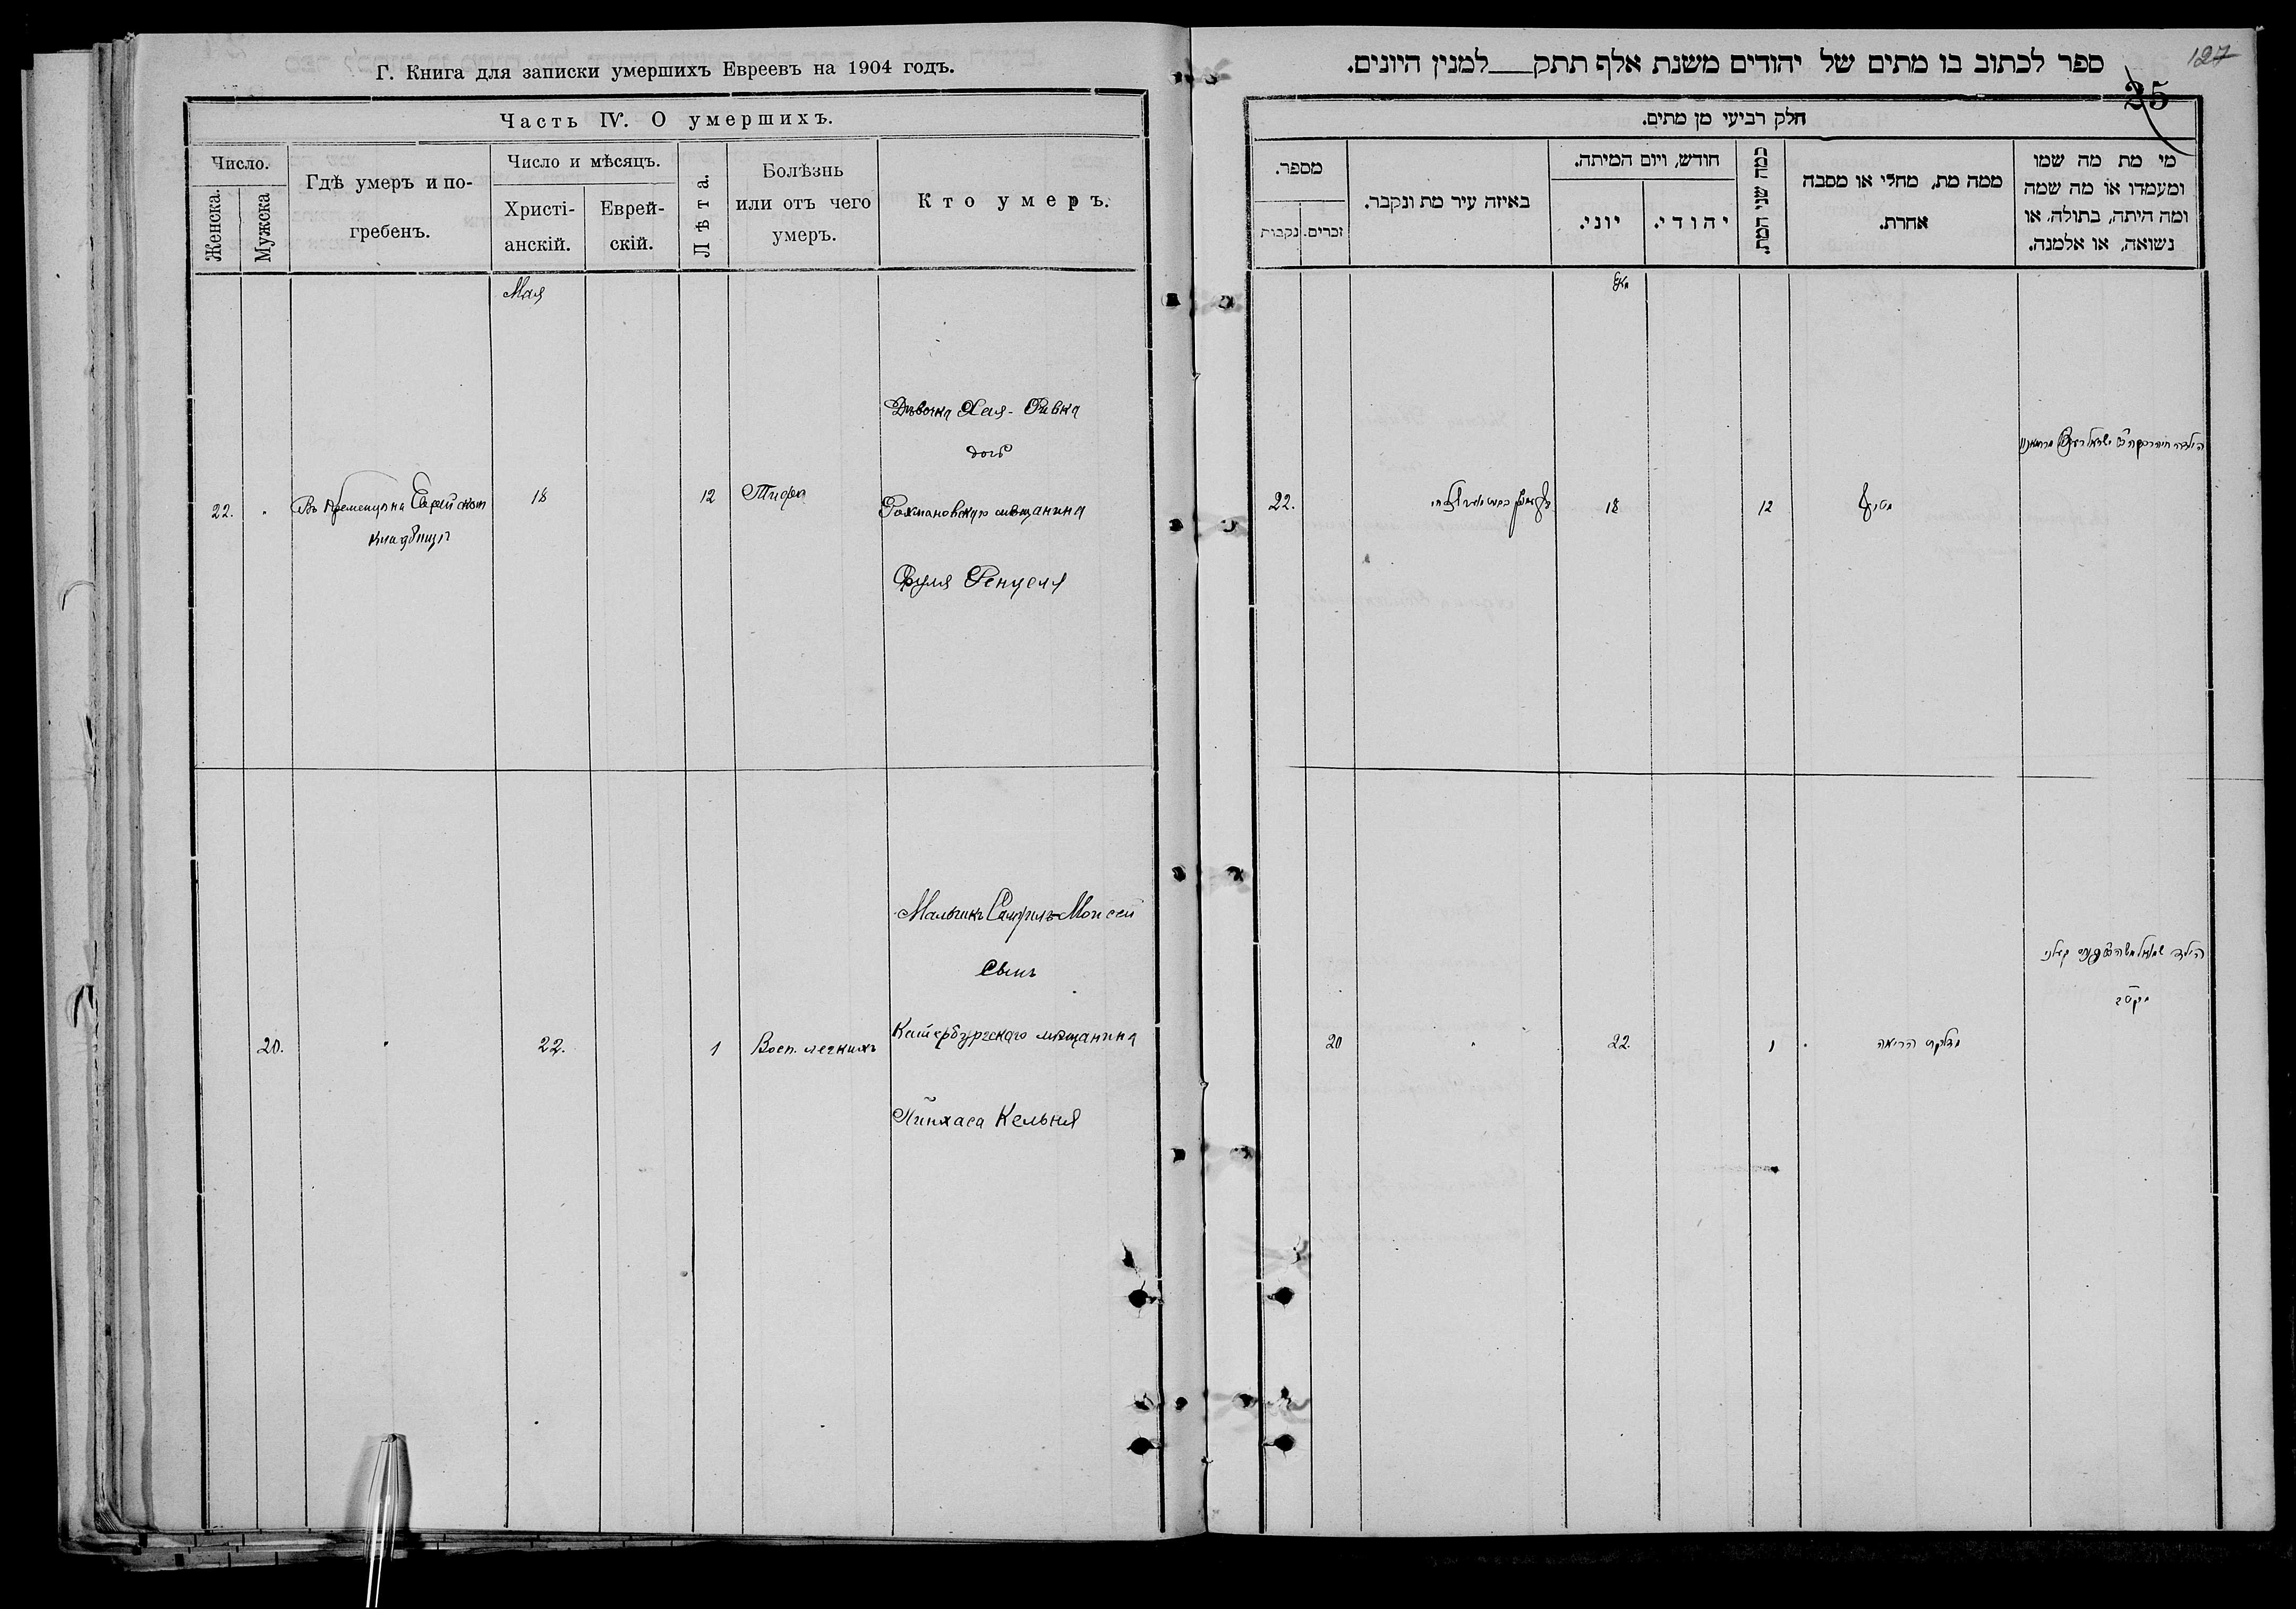 Г. Книга для записки умершихъ Евреевъ на 1904 годъ.
Часть IV. О умершихъ.
Число.
Женска.
Мужска
Гдѣ умеръ и по-
гребенъ.
Число и мѣсяцъ.
Христі-
анскій.
Еврей-
скій.
Лѣта.
Болѣзнь
или отъ чего
умеръ.
Кто умеръ.
Мая
22.
"
Въ Кременцѣ на Еврейскомъ
кладбищѣ
18
12
Тифъ
Дѣвочка Хая-Ривка
дочь
Рахмановскаго мѣщанина
Сруля Ренцеля
20.
"
22.
1
Восп. легкихъ
Мальчикъ Самуилъ Моисей
Сынъ
Катербургскаго мѣщанина
Пинхаса Кельня
ספר לכתוב בו מתים של יהודים משנת אלף תתק למנין היונים.
127
25
חלק רביעי מן מתים.
מספר.
נקבות
זכרים.
באיזה עיר מת ונקבר.
חודש, ויום המיתה.
יוני.
יהודי.
כמה שני המת.
ממה מת, מחלי או מסבה
אחרת.
מי מת מה שמו
ומעמדו או מה שמה
ומה היתה, בתולה, או
נשואה, או אלמנה.
מאי
22.
18
12
הילדה חיה רבקה
20
"
22.
1
דלקת הריאה
הילד שמואל משה